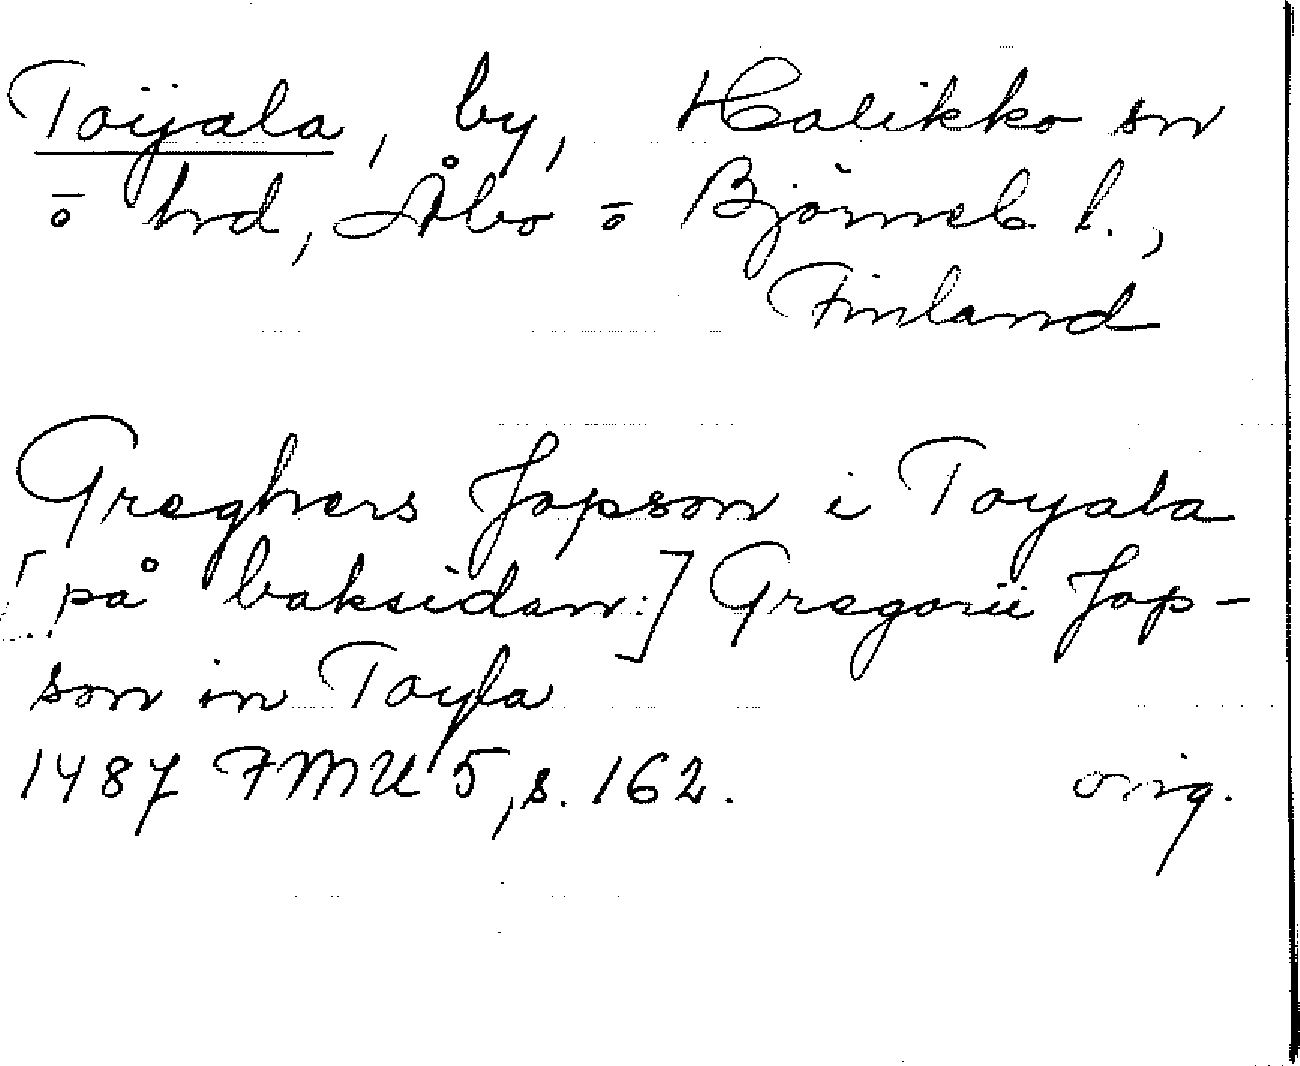 Toijala, by, Halikko sn
⸗ hrd, Åbo ⸗ Björneb. l.,
Finland
Greghers Jopson i Toyala
[på baksidan:] Gregorii Jop-
son in Toyla
1487 FMU 5, s. 162. orig.